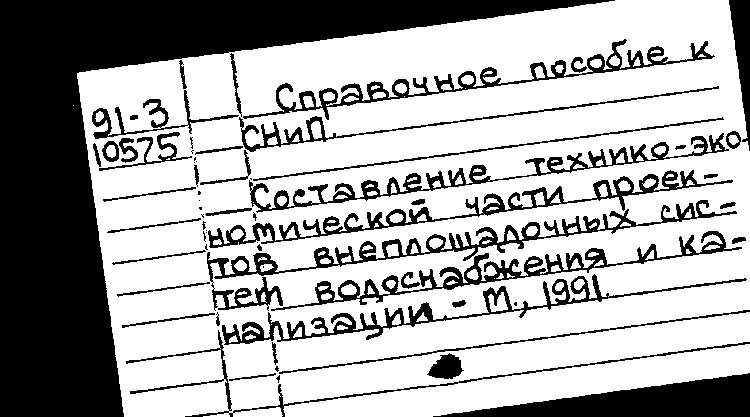 91-3
10575
Справочное пособие к
СНиП.
Составление технико-эко-
номической части проек-
тов внеплощадочных сис-
тем водоснабжения и ка-
нализации. - М., 1991.